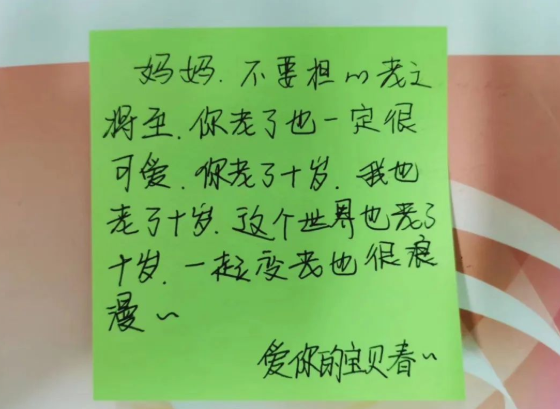 妈妈.不要担心老之
将至.你老了也一定很
可爱.你老了十岁.我也
老了十岁.这个世界也老了
十岁.一起变老也很浪
漫~
爱你的宝贝春~